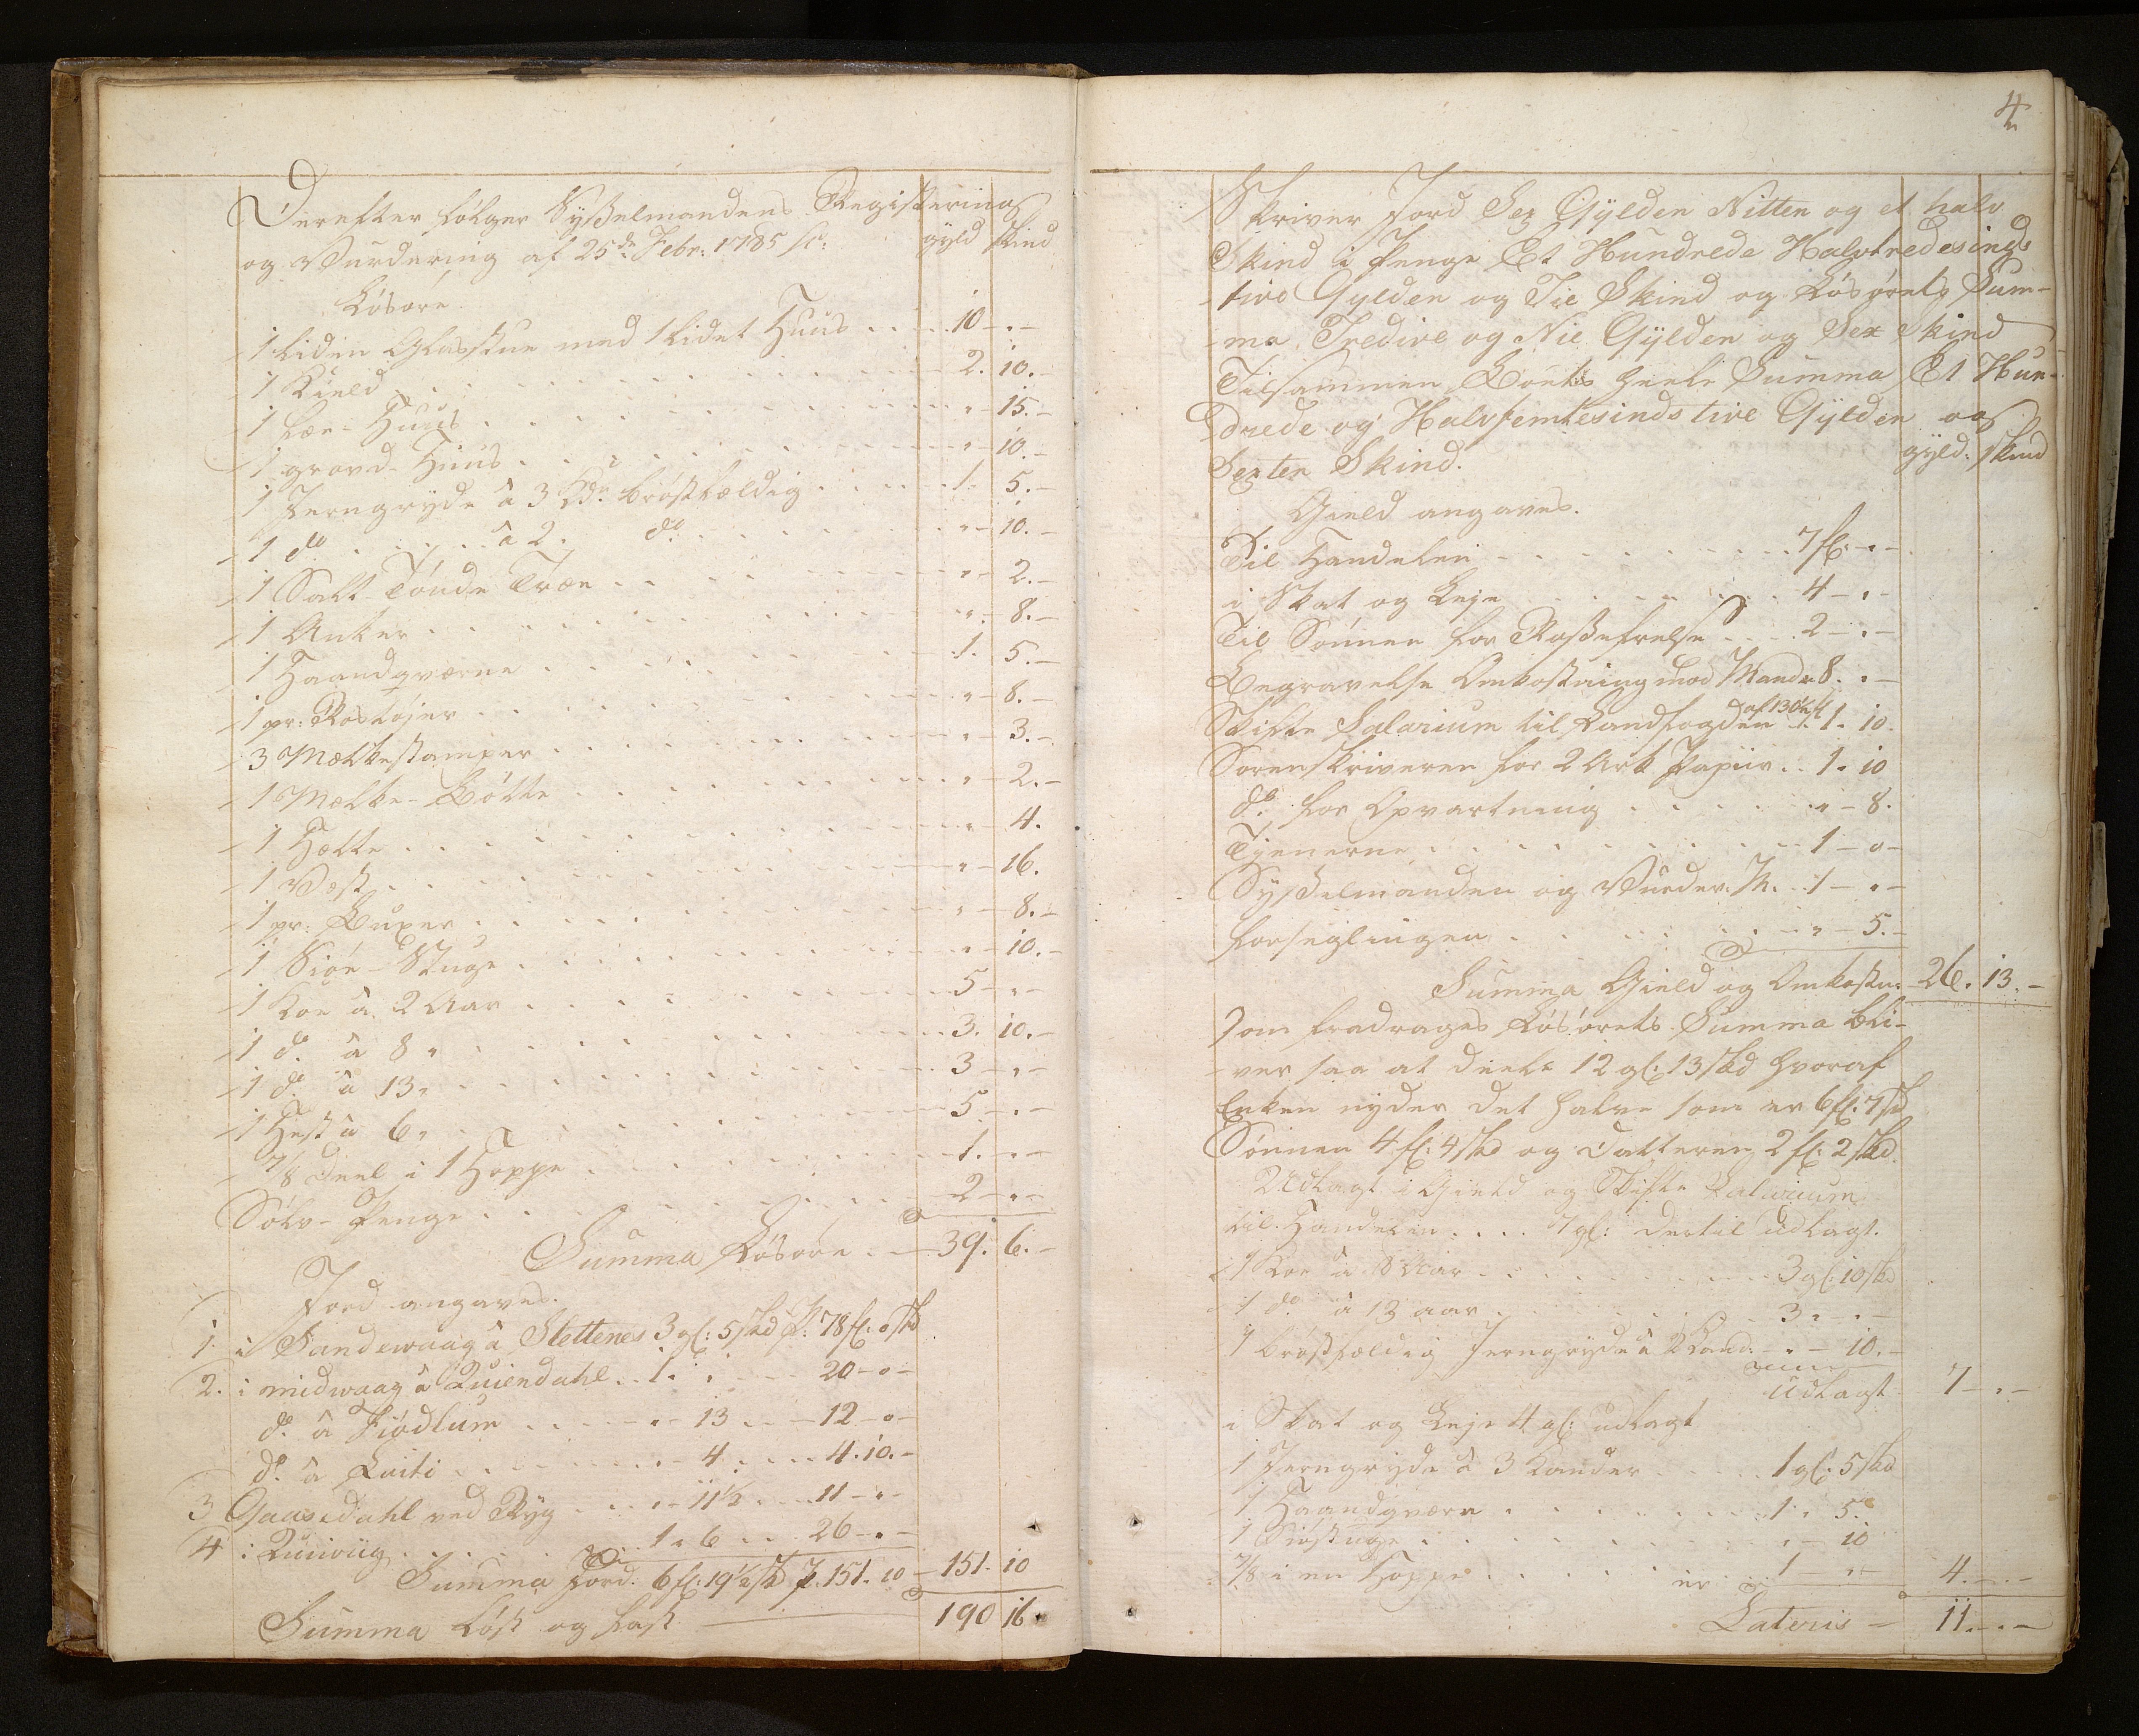 Derefter følger Sysselmandens Registering
og Vurdering af 25de Febr: 1785 sc: gyld skind
Løsøre
1 liden Glasstue med 1 lidet Huus . . . 10 - " -
1 Kield . . . 2. 10. -
1 Lon-Huus . . . " - 15. -
1 grovd-Huus . . . " - 10. -
1 Jerngryde a 3 Kdr brøstfældig . . . 1. 5. -
1 do . . . a 2. do . . . " - 10. -
1 Salt-Tønde Træe . . . " - 2. -
1 Anker . . . " - 8. -
1 Haandqværne . . . 1. 5. -
1 pr: Rostøjer . . . " - 8. -
3 Mælkestamper . . . " - 3. -
1 Mælke-Bøtte . . . " - 2. -
1 Hætte . . . " - 4.
1 Vest . . . " - 16.
1 pr: Buxer . . . " - 8. -
1 Siøe-Stuge . . . " - 10. -
1 Koe a 2 Aar . . . 5 - " -
1 do. a 8 " . . . 3. 10. -
1 do. a 13 " . . . 3 - " -
1 Hest a 6 " . . . 5 - " -
7/8 Deel i 1 Hoppe . . . 1. " -
Sølv-Penge . . . 2 - " -
Summa Løsøre . - 39. 6. -
Jord angaves.
1. i Sandewaag a Slettenes 3 gl: 5 skd p: 78 fl: 0 skd
2. i midwaag a Quiendahl . . 1 " " . . 20 - 0 -
do. a Fiødlum . . . " - 13 . . - 12 - 0 -
do. a Luiti . . . " - 4 . . . 4. 10. -
3 Gaasedahl ved Ryg . . . " - 11 1/2 . . . 11 - " -
4 i Quiviig . . . 1 " 6 . . 26 - " -
Summa Jord. 6 fl: 19 1/2 sk p. 151. 10 - 151. 10
Summa Løst og fast — 190 16.
4
Skriver Jord Sex Gylden Nitten og et halv
Skind i Penge Et Hundrede Halvtredesinds
tive Gylden og Tie Skind og Løsørets Sum-
ma Tredive og Nie Gylden og Sex Skind
Tilsammen Boets heele Summa Et Hun-
drede og Halvfemtesindstive Gylden og
Sexten Skind. gyld: skind
Gield angaves.
Til Handelen . . . 7 fl: - " -
i Skat og Leje . . . 4 - " -
Til Sønnen for Rossefrelse . . . 2 - " -
Begravelse Omkostning mod Manden 8. " -
Skifte Salarium til Landfogden af 130 1/2 fl 1. 10.
Sorenskriveren for 2 Ark Papiir . . 1. 10
do. for Opvartning . . . " - 8.
Tjenerne . . . 1 - 0 -
Sysselmanden og Vurder. M. . . 1 - " -
forseglingen . . . " - 5. -
Summa Gield og Omkostn: 26. 13. -
som fradrages Løsørets Summa bli-
ver saa at deele 12 gl: 13 skd hvoraf
Enken nyder det halve som er 6 fl: 7 sd
Sønnen 4 fl: 4 skd og Datteren 2 fl: 2 skd.
Udlagt i Gield og Skifte Salarium
til Handelen . . . . 7 gl: dertil udlagt.
1 Koe a 8 Aar . . . 3 gl: 10 skd
1 do. a 13 aar . . . 3 " - " -
1 brøstfældig Jerngryde a 2 Kand: - " - 10. -
Udlagt 7 - " -
i Skat og Leje 4 gl: udlagt
1 Jerngryde a 3 Kander . . . 1 gl: 5 skd
1 Haandqværn . . . 1 " 5.
1 Siøstuge . . . " - 10
7/8 i en Hoppe . . . er . . 1 - " - 4. - " -
Lateris - 11. - " -